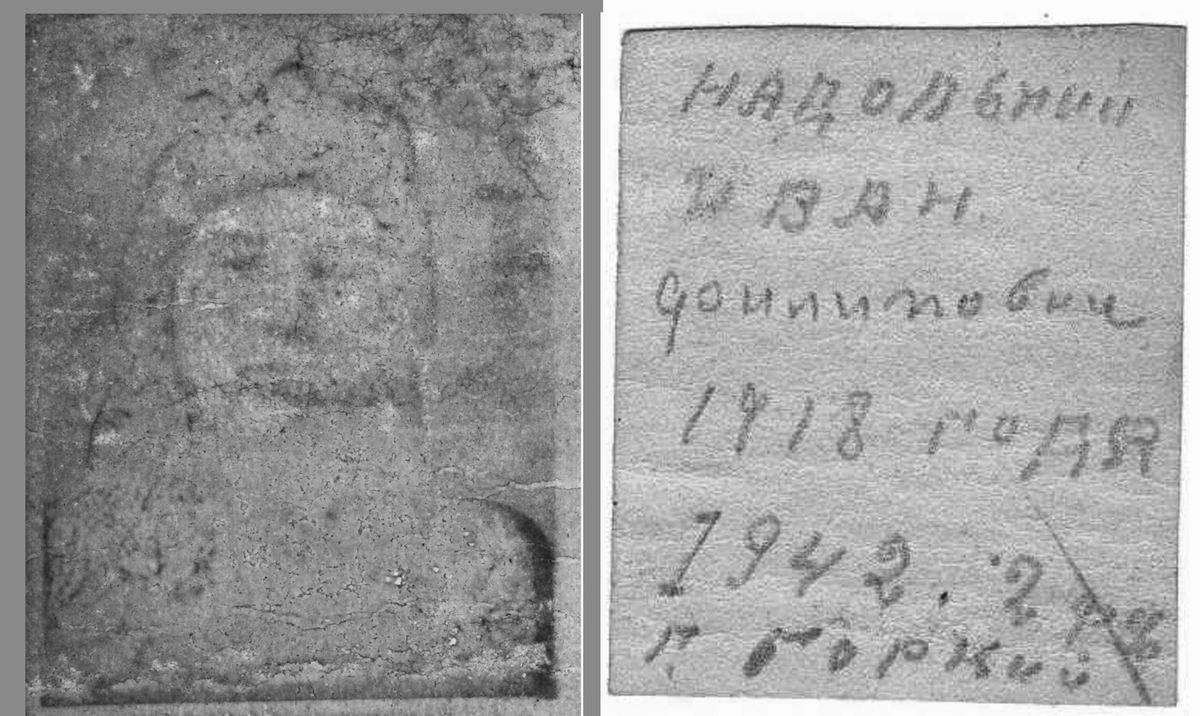 НАДОЛЬНИЙ
ИВАН.
Донилмовиче
1918 года
1942. 2
г. Горький